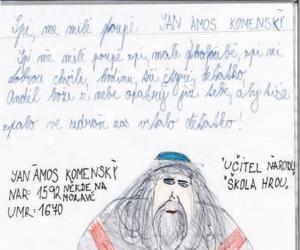 Spi, mé milé poupě JAN ÁMOS KOMENSKÝ
spi mé milé poupě spi, malé spi mi
dobrou chvíli, hodinu, čtyři, děťátko
Anděl boží z nebe opatruj již tebe, aby
spalo ve zdraví zas vstalo děťátko!
JAN ÁMOS KOMENSKÝ
NAR: 1592 NĚKDE NA
MORAVĚ
UMR: 1670
"UČITEL NÁRODŮ"
"ŠKOLA HROU"